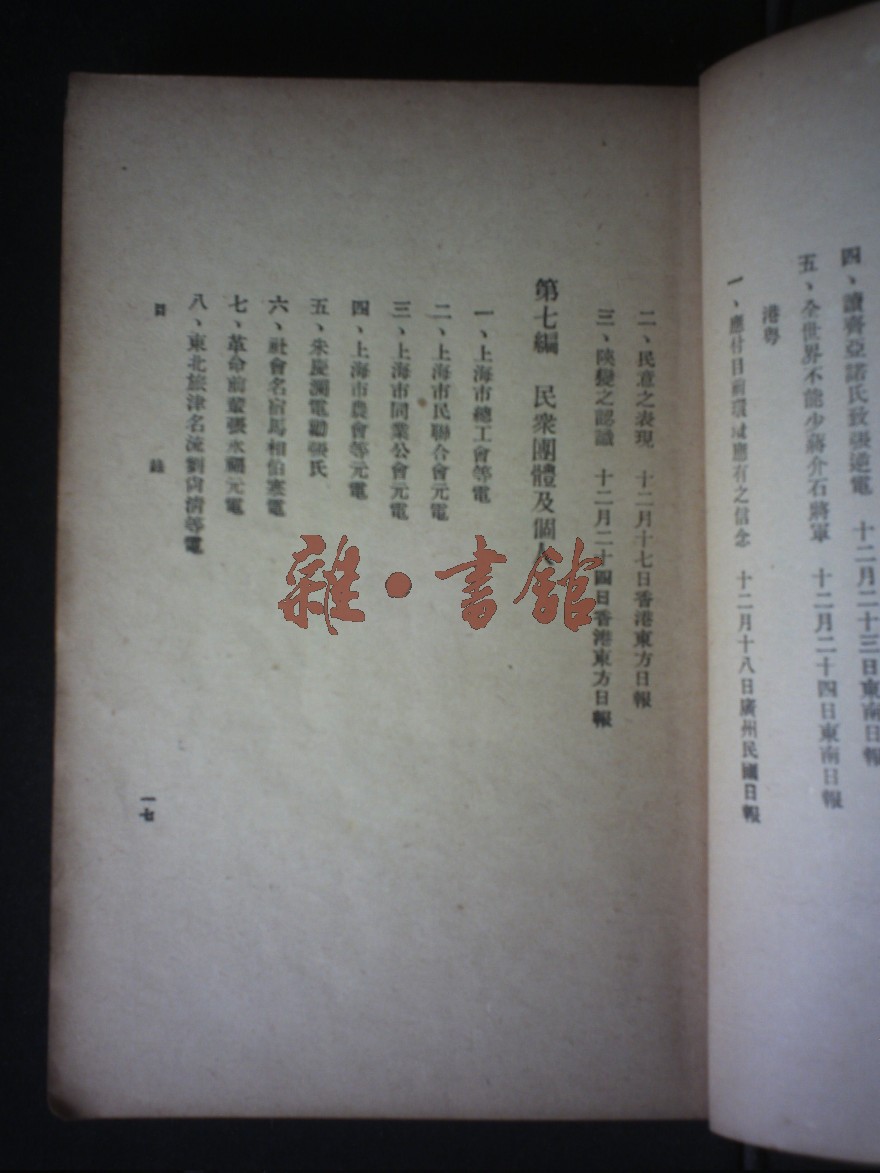 四、讀齊亞諾氏致張逆電　十二月二十三日東南日報
五、全世界不能少蔣介石將軍　十二月二十四日東南日報
港粵
一、應付目前環境應有之信念　十二月十八日廣州民國日報
二、民意之表現　十二月十七日香港東方日報
三、陝變之認識　十二月二十四日香港東方日報
第七編　民衆團體及個人
一、上海市總工會等電
二、上海市民聯合會元電
三、上海市同業公會元電
四、上海市農會等元電
五、朱慶瀾電勸張氏
六、社會名宿馬相伯寒電
七、革命前輩張永福元電
八、東北旅津名流劉尙淸等電
目錄
一七
雜·書館